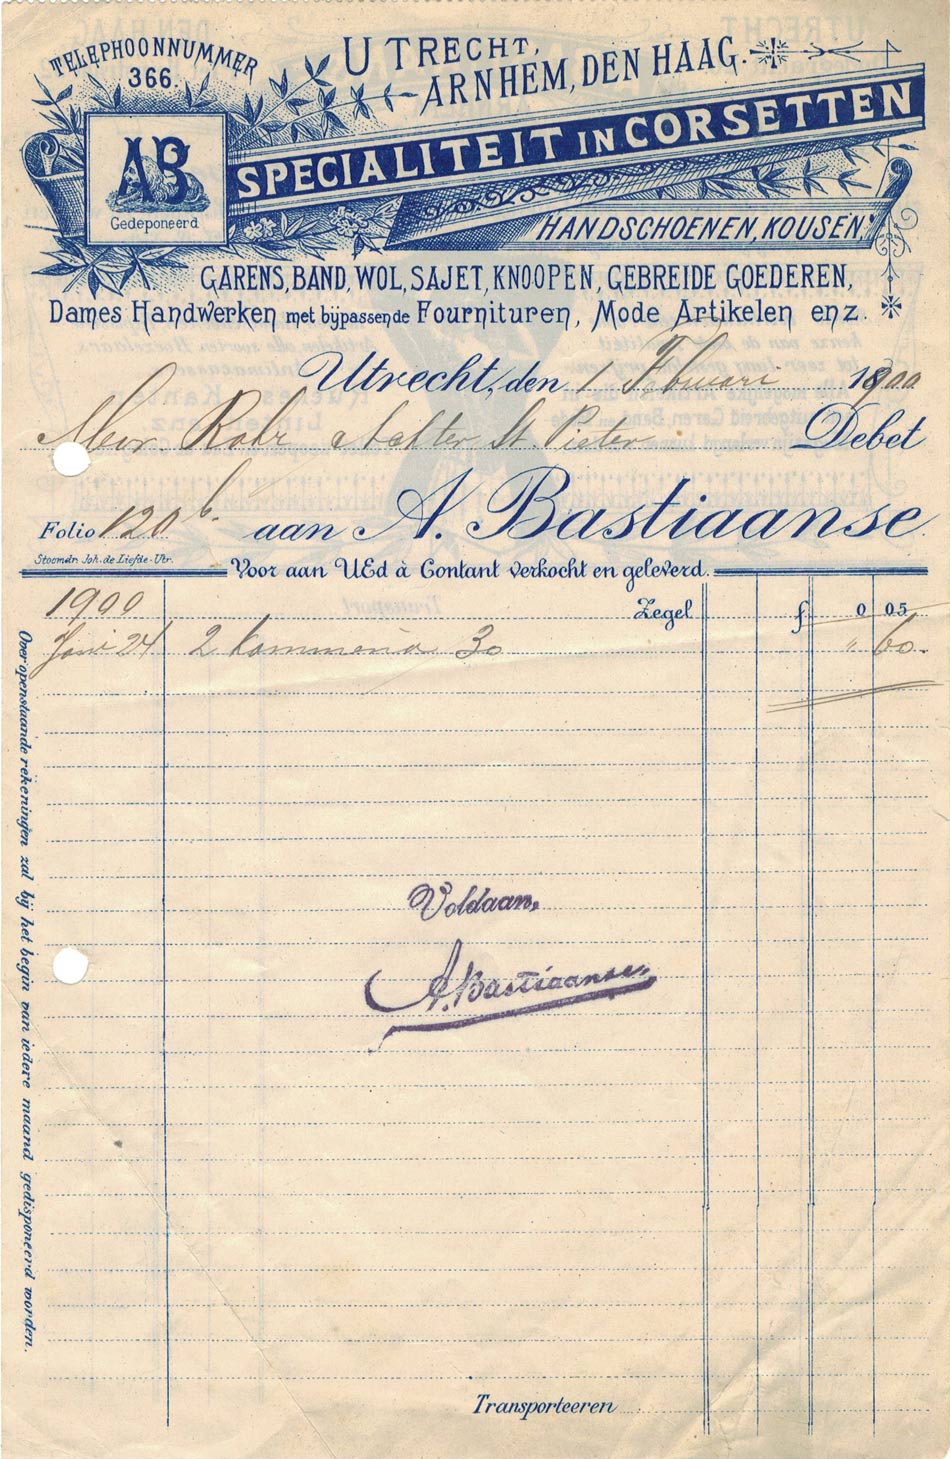 TELEPHOONNUMMER
366.
UTRECHT,
ARNHEM, DEN HAAG.
AB
Gedeponeerd
SPECIALITEIT IN CORSETTEN
HANDSCHOENEN, KOUSEN.
GARENS, BAND, WOL, SAJET, KNOOPEN, GEBREIDE GOEDEREN,
Dames Handwerken met bijpassende Fournituren, Mode Artikelen enz.
Utrecht, den 1 Februari 1900
Mevr. Rohr Achter St. Pieter Debet
Folio 120 b. aan A. Bastiaanse
Stoomdr. Joh. de Liefde - Utr.
Voor aan UEd à Contant verkocht en geleverd.
1900 Zegel f 0 05
Janr 24 2 30 " 60
Over openstaande rekeningen zal bij het begin van iedere maand gedisponeerd worden.
Voldaan,
A. Bastiaanse.
Transporteeren